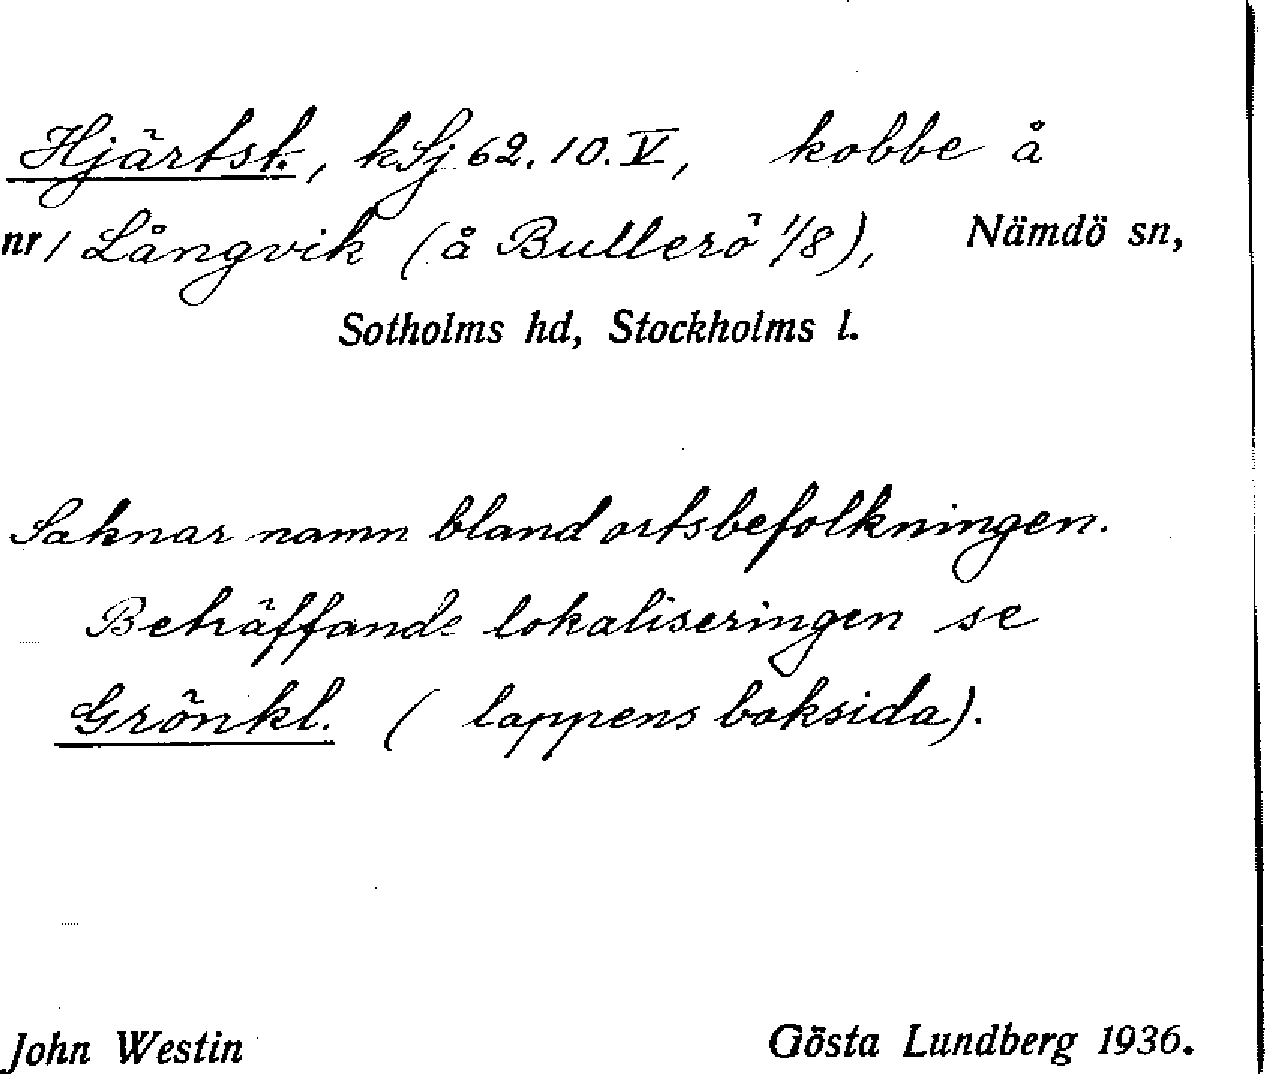 Hjärtsk., kSj 62.10.V, kobbe å
nr 1 Långvik (å Bullerö 1/8), Nämdö sn,
Sotholms hd, Stockholms l.
Saknar namn bland ortsbefolkningen.
Beträffande lokaliseringen se
Grönkl. ( lappens baksida).
John Westin Gösta Lundberg 1936.